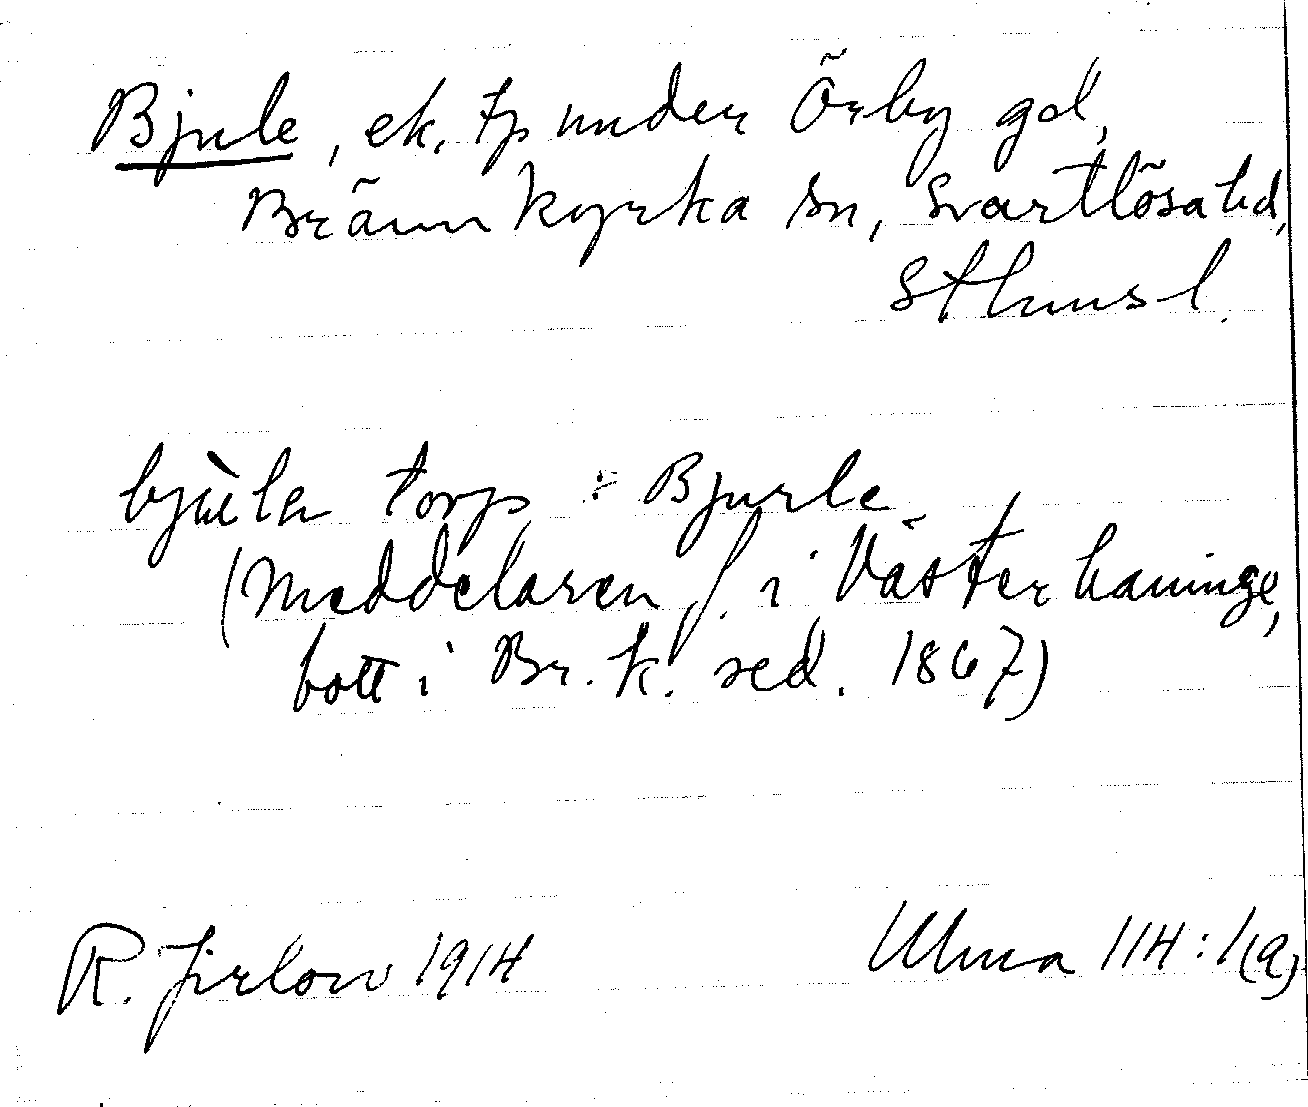 Bjule, ek. tp under Örby gd,
Brännkyrka sn, Svartlösa hd,
Sthmsl.
bjùla torp : Bjurle
(Meddelaren f. i Västerhaninge,
bott i Br.k. sed. 1867)
R. Jirlow 1914 Ulma 114:1(a)